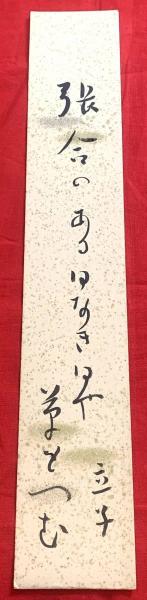 張合のある日なき日や草をつむ
立子